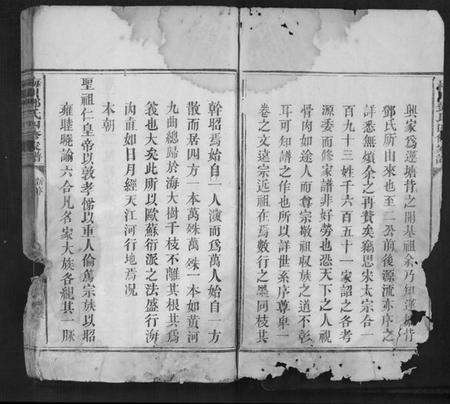 興家為蓮塘背之開基祖矣乃知蓮塘背
鄧氏所由來也至二公前後源流亦序之
詳悉無煩余之再贅矣竊思宋太宗合一
百九十三姓千六百五十一家詔之各考
源委而修家譜非好勞也恐天下之人視
骨肉如途人而尊宗敬祖收族之道不彰
耳可知譜之作也所以詳世系序尊卑一
卷之文遠宗近祖在焉數行之墨同枝其
幹昭焉始自一人演而為萬人始自一方
散而居四方一本萬殊萬殊一本如黃河
九曲總歸於海大樹千枝不離其根其為
義也大矣此所以歐蘇衍派之法盛行海
內直如日月經天江河行地焉况
本朝
聖祖仁皇帝以敦孝悌以重人倫篤宗族以昭
雍睦曉諭六合凡名家大族各纘其一脉
鄧氏四修家譜